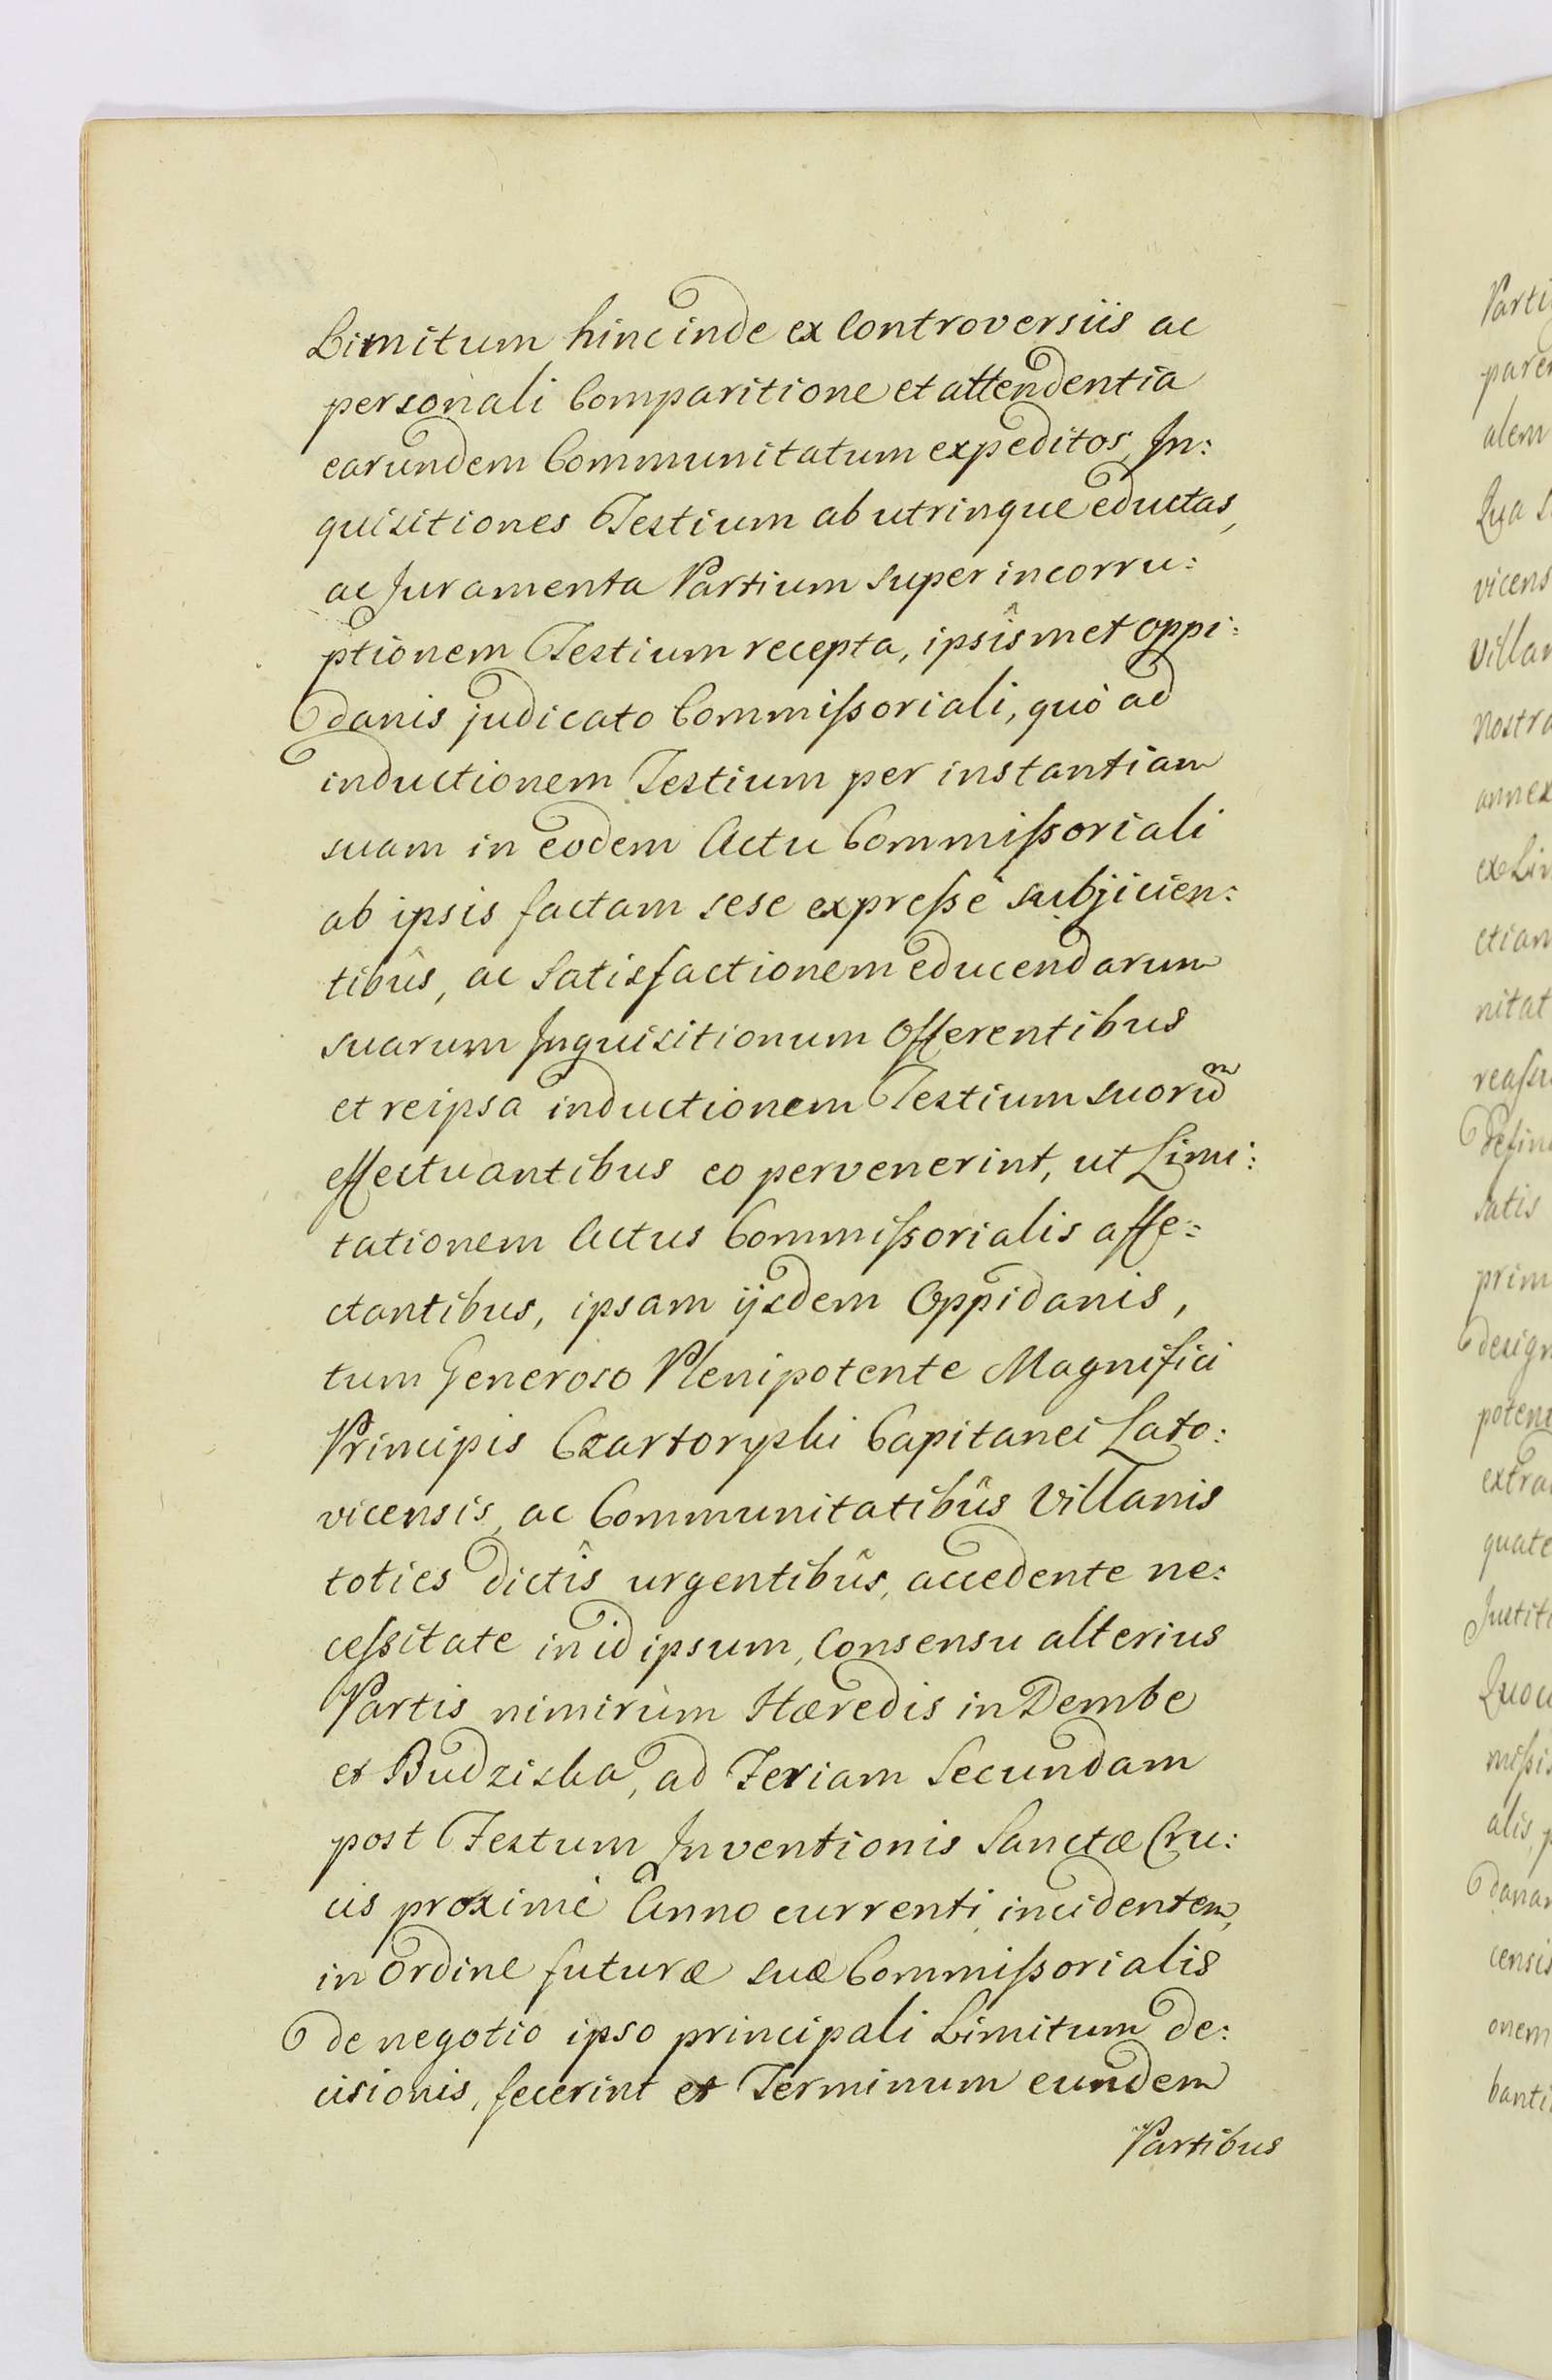 Limitum hinc inde ex Controversiis ac
personali Comparitione et attendentia
earundem Communitatum expeditos, In:
quisitiones Testium ab utrinque eductas,
ac Juramenta Partium super incorru:
ptionem Testium recepta, ipsîsmet Oppi:
danis judicato Commißoriali, quò ad
inductionem Testium per instantiam
suam in eodem Actu Commißoriali
ab ipsis factam sese expreßè subjicien:
tibûs, ac Satisfactionem educendarum
suarum Inquisitionum Offerentibus
et reipsa inductionem Testium suorũm
effectuantibus eo pervenerint, ut Limi:
tationem Actus Commißorialis affe:
ctantibus, ipsam ijsdem Oppidanis,
tum Generoso Plenipotente Magnifici
Principis Czartoryski Capitanei Lato:
vicensis, ac Communitatibûs Villanis
toties dictîs urgentibûs, accedente ne:
ceßitate in id ipsum, Consensu alterius
Partis nimirùm Hæredis in Dembe
et Budziska, ad Feriam Secundam
post Festum Inventionis Sanctæ Cru:
cis proximè Anno currenti incidentem,
in Ordine futuræ suæ Commißorialis
de negotio ipso principali Limitum de:
cisionis, fecerint et Terminum eundem
Partibus
Parti
parer
alem
Qua S
vicens
Villan
nostra
annex
ex Lim
ctiam
nitat
reaßu
Defin
satis
prim
design
potent
extra
quate
Justiti
Quocu
mißis
alis, p
danar
censis
onem
banti